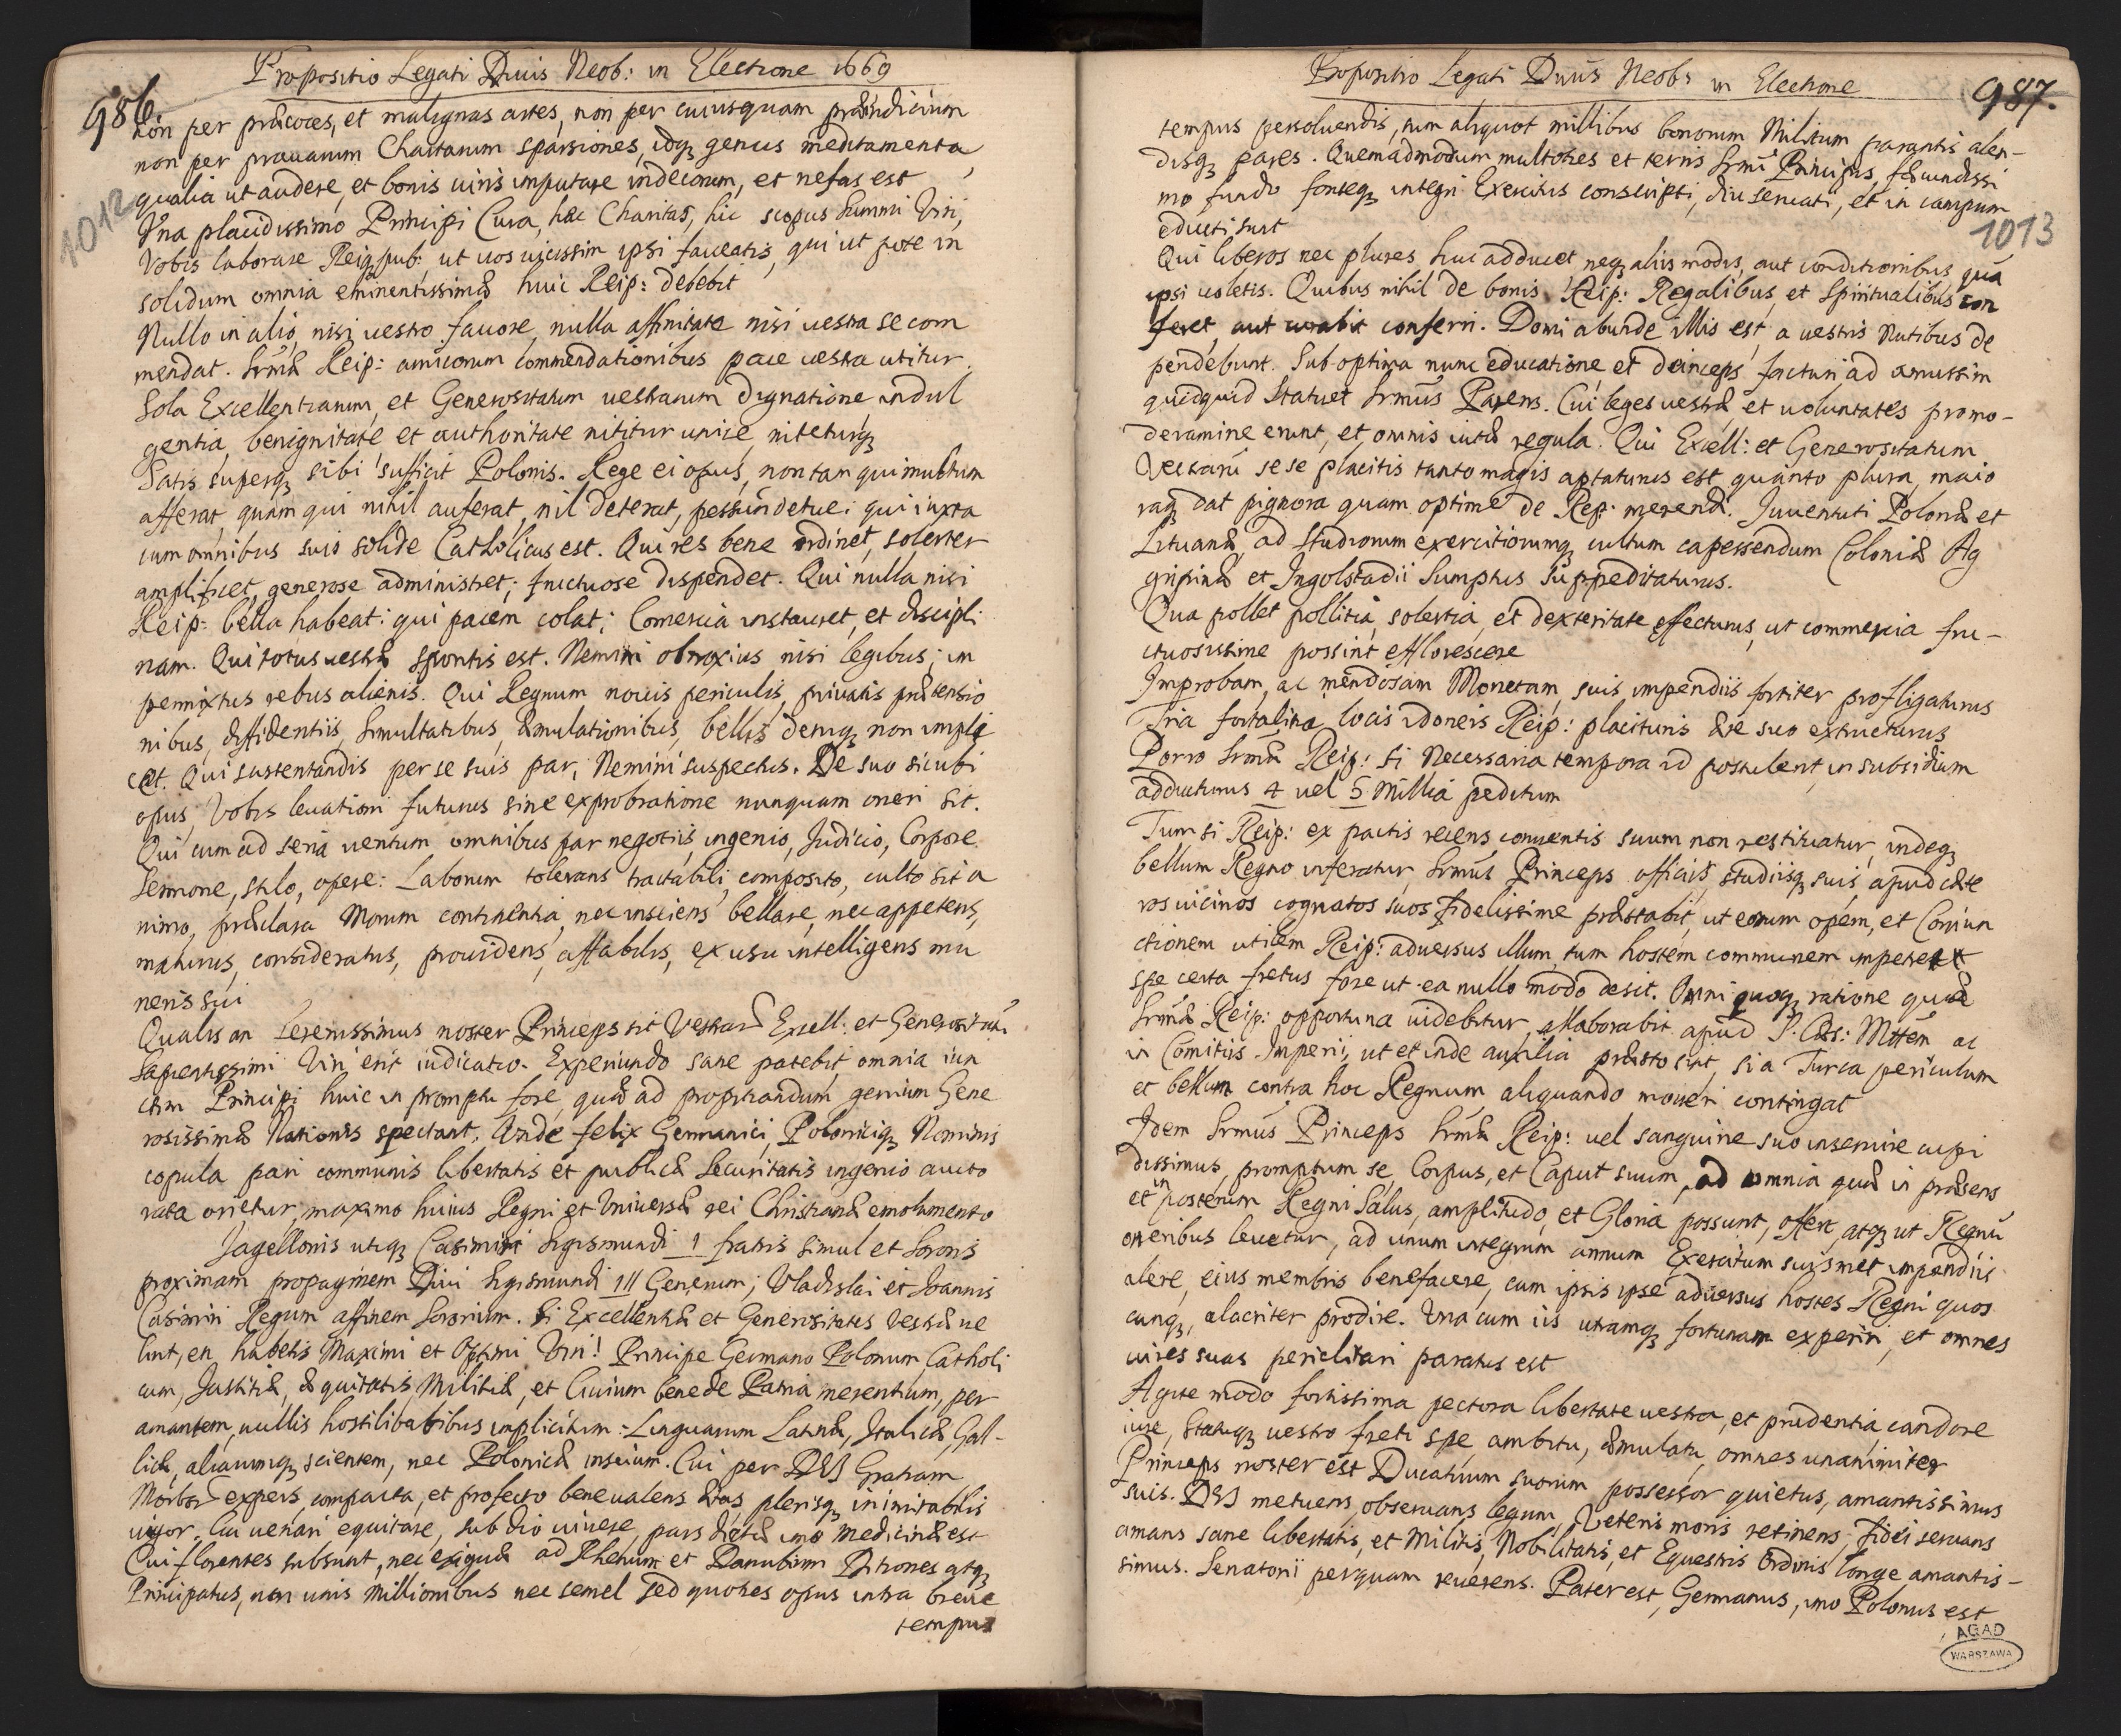 Propositio Legati Ducis Neob: in Electione 1669
986
1012
non per præcoces, et malignas artes, non per cuiusquam præiudicium
non per prauarum Chartarum sparsiones, idq, genus mentamenta,
qualia ut audere, et bonis uiris imputare indecorum, et nefas est
Vna placidissimo Principi Cura, hæc Charitas, hic scopus Summi Viri,
Vobis laborare Reiq pub: ut uos uicissim ipsi faueatis, qui ut pote in
solidum omnia eminentissimæ huic Reip: debebit
Nullo in alio, nisi uestro fauore, nulla affinitate nisi uestra se com
mendat. Srmæ Reip: amicorum commendationibus pace uestra utitur.
Sola Excellentiarum, et Generositatum uestrarum dignatione indul
gentia, benignitate et authoritate nititur unice, niteturq
Satis superq sibi sufficit Polonis. Rege ei opus, non tan qui multum
afferat, quàm qui nihil auferat, nil deterat, pessundetue: qui iuxta
cum omnibus suis solide Catholicus est. Qui res bene ordinet, solerter
amplificet, generose administret; fructuose dispendet. Qui nulla nisi
Reip: bella habeat: qui pacem colat; Comercia instauret, et discipli
nam. Qui totus uestræ spontis est. Nemini obnoxius nisi legibus; im
permixtus rebus alienis. Qui Regnum nouis periculis, priuatis prætensio
nibus, diffidentiis, Simultatibus, æmulationibus, bellis deniq non impli
cet. Qui sustentandis per se suis par, Nemini suspectus. De suo sicubi
opus, Vobis leuationi futurus sine exprobratione nunquam oneri sit.
Qui cum ad seria uentum omnibus par negotiis, ingenio, Judicio, Corpore.
Sermone, stilo, opere: Laborum tolerans tractabili, composito, culto sit a
nimo, præclara Morum continentia, nec insciens bellare, nec appetens,
maturus, consideratus, prouidens, affabilis, ex usu intelligens mu
neris sui
Qualis an Serenissimus noster Princeps sit Vestrar Excell: et Generositatū
Sapientissimi Viri erit iudicatio. Experiundo sane patebit omnia iun
ctim Principi huic in promptu fore, quæ ad propitiandum genium Gene
rosissimæ Nationis spectant. Vnde felix Germanici, Poloniciq Nominis
copula pari communis libertatis et publicæ Securitatis ingenio aucto
rata orietur, maximo huius Regni et Vniuersæ rei Christianæ emolumento
Jagellonis utiq Casimiri Sigismundi 1 fratris simul et Sororis
proximam propaginem Diui Sigismundi III Generum; Vladislai et Joannis
Casimiri Regum affinem Sororium. Si Excellentiæ et Generositates Vestræ ue
lint, en habetis Maximi et Optimi Viri! Principe Germano Polonum Catholi
cum, Justitiæ, æquitatis, Militiæ, et Ciuium bene de Patria merentium, per
amantem, nullis hostilitatibus implicitum: Linguarum Latinæ, Italicæ, Gal-
licæ, aliarumq scientem, nec Polonicæ inscium. Cui per DEI Gratiam
Morbor expers, compacta, et profecto beneualens ætas, plerisq inimitabilis
uigor. Cui uenari equitare, sub dio uiuere, pars diætæ imo medicinæ est
Cui florentes subsunt, nec exiguæ ad Rhenum et Danubium Ditiones atq
Principatus, non unis Millionibus nec semel sed quoties opus intra breue
tempus
Propositio Legati Ducis Neob: in Electione
987.
1013
tempus persoluendis, tum aliquot millibus bonorum Militum parantis alen-
disq pares. Quemadmodum multoties et ternis Srmi Principis, fæcundissi
mo fundo fonteq integri Exercitus conscripti, diu seruati, et in campum
educti sunt
Qui liberos nec plures huc adducet neq aliis modis, aut conditionibus quā
ipsi uoletis. Quibus nihil de bonis Reip: Regalibus, et Spiritualibus con
feret, aut curabit conferri. Domi abunde illis est, a uestris Nutibus de
pendebunt. Sub optima nunc educatione et deinceps facturi ad amussim
quidquid Statuet Srmus Parens. Cui leges uestræ et uoluntates promo-
deramine erunt, et omnis uitæ regula. Qui Excell: et Generositatum
Vestrarū sese placitis tanto magis aptaturus est, quanto plura, maio
raq dat pignora quam optime de Rep: merendi. Juuentuti Polonæ et
Lituanæ, ad Studiorum exercitiorumq cultum capessendum Coloniæ Ag
gripinæ et Ingolstadii Sumptus Suppeditaturus.
Qua pollet pollitia, solertia, et dexteritate effecturus, ut commercia fru-
ctuosissime possint efflorescere
Improbam, ac mendosam Monetam, suis impendiis fortiter profligaturus
Tria fortalitia locis idoneis Reip: placituris ære suo extructurus
Porro Srmæ Reip: si Necessaria tempora id postulent in subsidium
adducturus 4 uel 5 Millia peditum
Tum si Reip: ex pactis recens conuentis suum non restituatur, indeq
bellum Regno inferatur, Srmus Princeps officiis, studiisq suis apud cæte
ros uicinos cognatos suos fidelissime præstabit, ut eorum opem, et Coniun
ctionem utilem Reip: aduersus illum, tum hostem communem impetret
spe certa fretus fore ut ea nullo modo desit. Omni quoq ratione quæ
Srmæ Reip: opportuna uidebitur, allaborabit apud S. Cæs: Mttem ac
in Comitiis Imperii, ut et inde auxilia præsto sint, si a Turca periculum
et bellum contra hoc Regnum aliquando moueri contingat
Idem Srmus Princeps Srmæ Reip: uel sanguine suo inseruire cupi
dissimus, promptum se, Corpus, et Caput suum, ad omnia quæ in præsens
et in posterum Regni Salus, amplitudo, et Gloria possunt, offert, atq ut Regnū
oneribus leuetur, ad unum integrum annum Exercitum suismet impendiis
alere, eius membris benefacere, cum ipsis ipse aduersus hostes Regni quos
cunq, alacriter prodire. Vna cum iis utramq fortunam experiri, et omnes
uires suas periclitari paratus est
Agite modo fortissima pectora libertate uestra, et prudentia, candore
iure, Statuq uestro freti spe, ambitu, æmulatu, omnes unanimiter
Princeps noster est Ducatuum suorum possessor quietus, amantissimus
suis. DEI metuens, obseruans legum, Veteris moris retinens, fidei seruans
amans sane libertatis, et Militis, Nobilitatis, et Equestris Ordinis longe amantis-
simus. Senatorii perquam reuerens. Pater est, Germanus, imo Polonus est
AGAD
WARSZAWA